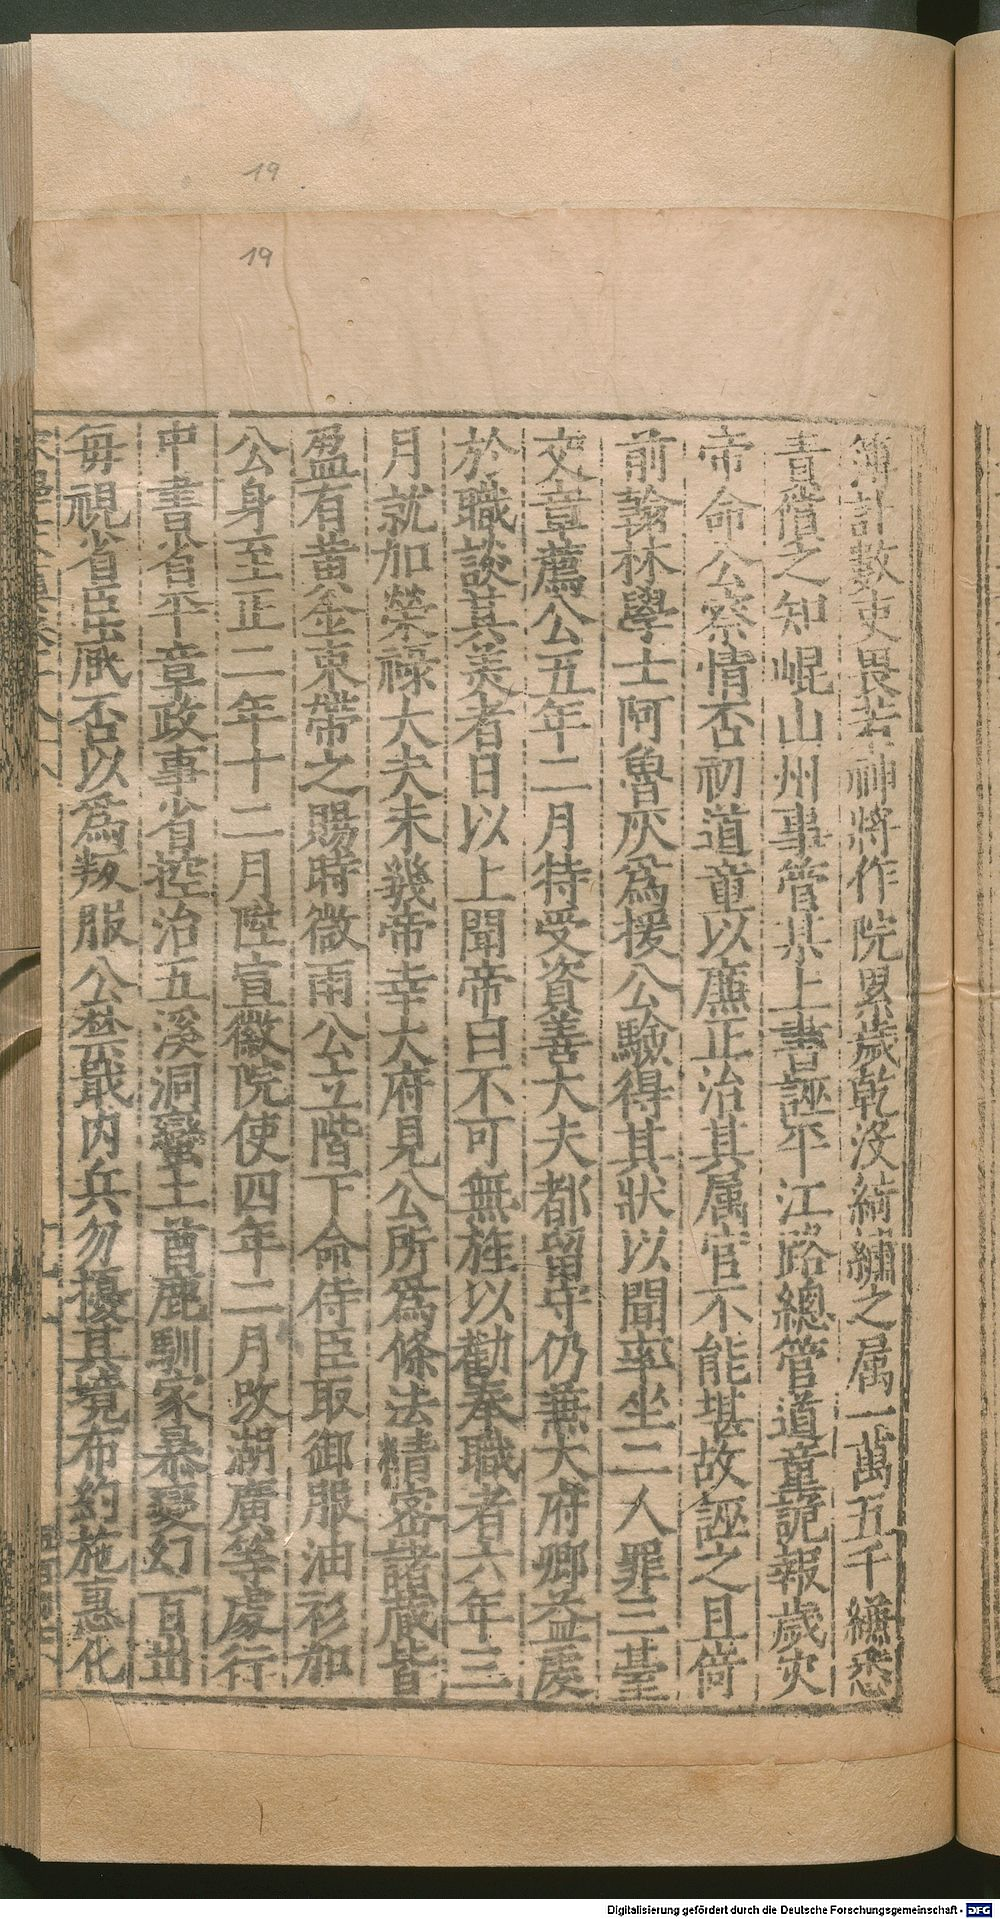 19
19
簿計數吏畏若神將作院累歲乾沒綺繡之属一萬五千縑悉
責償之知崐山州事管某上書誣平江路緫管道童詭報歲灾
帝命公察情否初道童以廉正治其属官不能堪故誣之且倚
前翰林學士阿魯灰爲援公驗得其狀以聞率坐二人罪三臺
文章薦公五年二月特受資善大夫都留守仍兼大府卿益虔
於職談其美者日以上聞帝曰不可無旌以勸奉職者六年三
月就加榮禄大夫未幾帝幸大府見公所爲條法精密諸蔵皆
盈有黄金束帶之賜時微雨公立階下命侍臣取御服油衫加
公身至正二年十二月陞宣徽院使四年二月改湖廣等處行
中書省平章政事省控治五溪洞蠻土酋鹿馴豕暴變幻百出
毎視省臣臧否以爲叛服公禁戢内兵勿擾其境布約施惠化
Digitalisierung gefördert durch die Deutsche Forschungsgemeinschaft - DFG